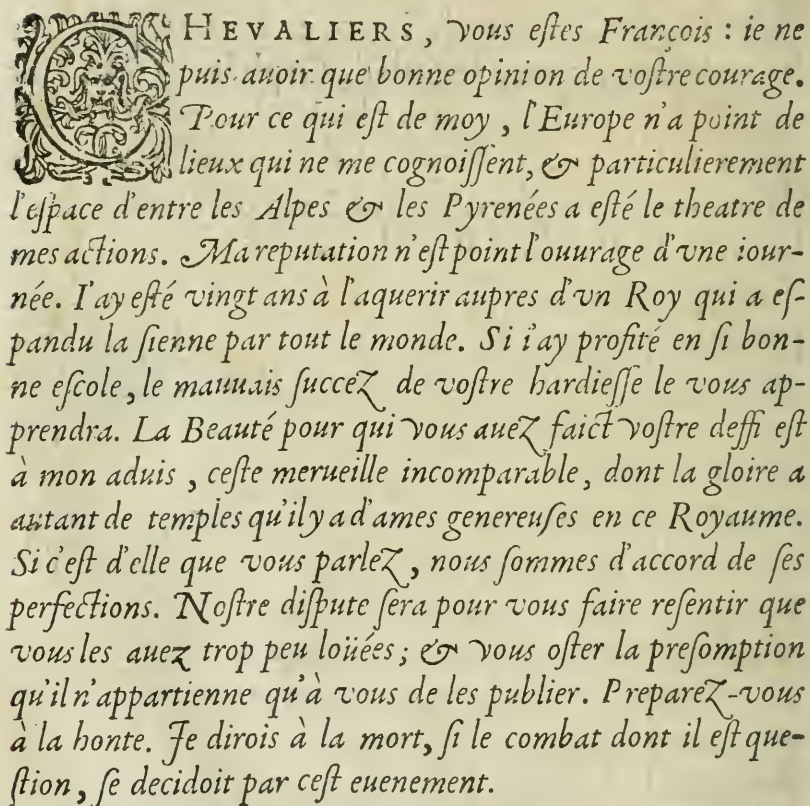 CHEVALIERS, vous estes François : ie ne
puis auoir que bonne opinion de vostre courage.
Pour ce qui est de moy, l'Europe n'a point de
lieux qui ne me cognoissent, & particulierement
l'espace d'entre les Alpes & les Pyrenées a esté le theatre de
mes actions. Ma reputation n'est point l'ouurage d'vne iour-
née. I'ay esté vingt ans à l'aquerir aupres d'vn Roy qui a es-
pandu la sienne par tout le monde. Si i'ay profité en si bon-
ne escole, le mauuais succez de vostre hardiesse le vous ap-
prendra. La Beauté pour qui vous auez faict vostre deffi est
à mon aduis, ceste merueille incomparable, dont la gloire a
autant de temples qu'il y a d'ames genereuses en ce Royaume.
Si c'est d'elle que vous parlez, nous sommes d'accord de ses
perfections. Nostre dispute sera pour vous faire resentir que
vous les auez trop peu loüées; & vous oster la presomption
qu'il n'appartienne qu'à vous de les publier. Preparez-vous
à la honte. Je dirois à la mort, si le combat dont il est que-
stion, se decidoit par cest euenement.